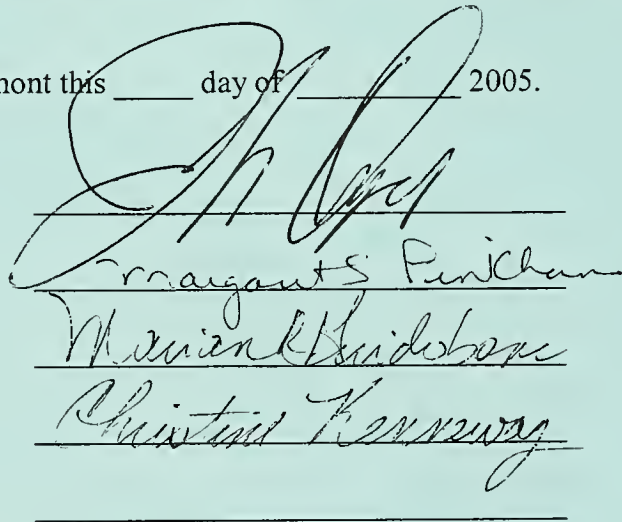 nont this ____ day of ________ 2005.
Margaret S Pinkham
Marian R
Christine Kenneway